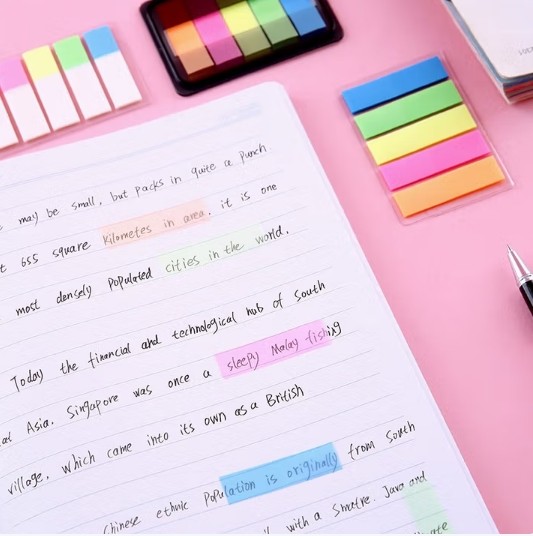 may be small, but packs in quite a punch.
655 square kilometes in area, it is one
most densely populated cities in the world.
Today the financial and technological hub of South
Asia. Singapore was once a sleepy Malay fishig
village, which came into its own as a British
Chinese ethnic population is originally from South
with a Java and